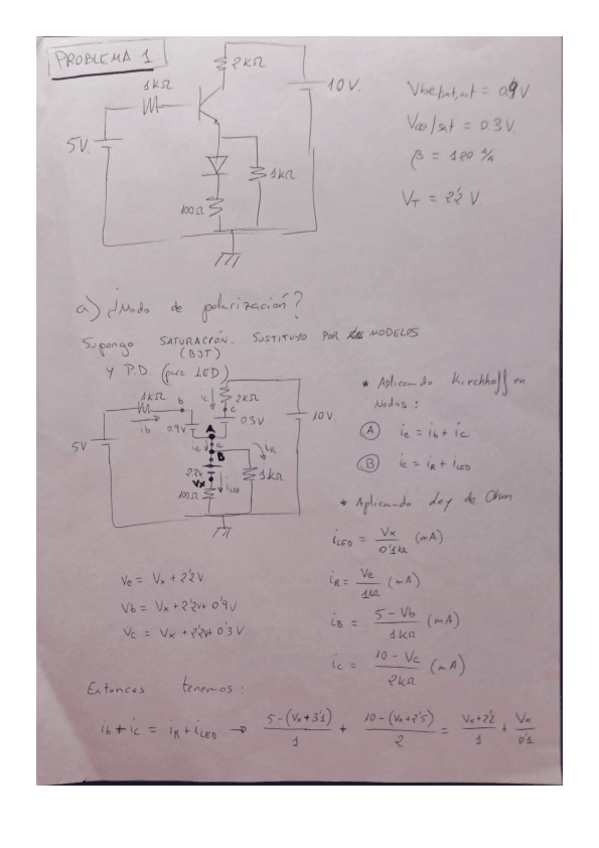 PROBLEMA 1
2kΩ
1kΩ
10V.
5V.
1kΩ
100Ω
Vbe/sat,act = 0.9V
Vce/sat = 0.3V.
β = 120 A/A
VT = 2'2 V.
a) ¿Modo de polarización?
Supongo SATURACIÓN. SUSTITUYO POR LOS MODELOS
(BJT)
Y P.D. (para LED)
1kΩ
b
ic
2kΩ
c
ib
0.9V
0.3V
10V.
5V
A
ie
e
B
iR
2'2V
Vx
iLED
1kΩ
100Ω
* Aplicando Kirchhoff en
Nodos:
A ie = ib + ic
B ie = iR + iLED
* Aplicando Ley de Ohm
iLED = Vx / 0'1kΩ (mA)
iR = Ve / 1kΩ (mA)
iB = 5 - Vb / 1kΩ (mA)
ic = 10 - Vc / 2kΩ (mA)
Ve = Vx + 2'2V.
Vb = Vx + 2'2V + 0'9V
Vc = Vx + 2'2V + 0'3V
Entonces tenemos:
ib + ic = iR + iLED → 5-(Vx+3'1) / 1 + 10-(Vx+2'5) / 2 = Vx+2'2 / 1 + Vx / 0'1